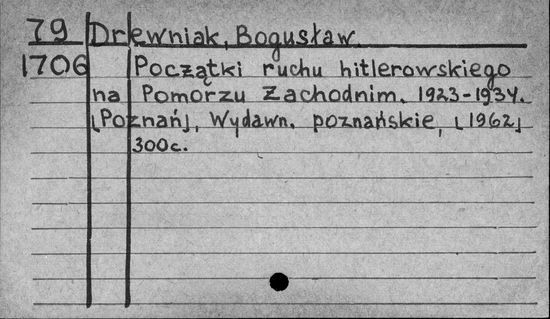 79 Drewniak, Bogusław.
1706 Początki ruchu hitlerowskiego
na Pomorzu Zachodnim. 1923-1934.
[Poznań], Wydawn. poznańskie, [1962]
300c.